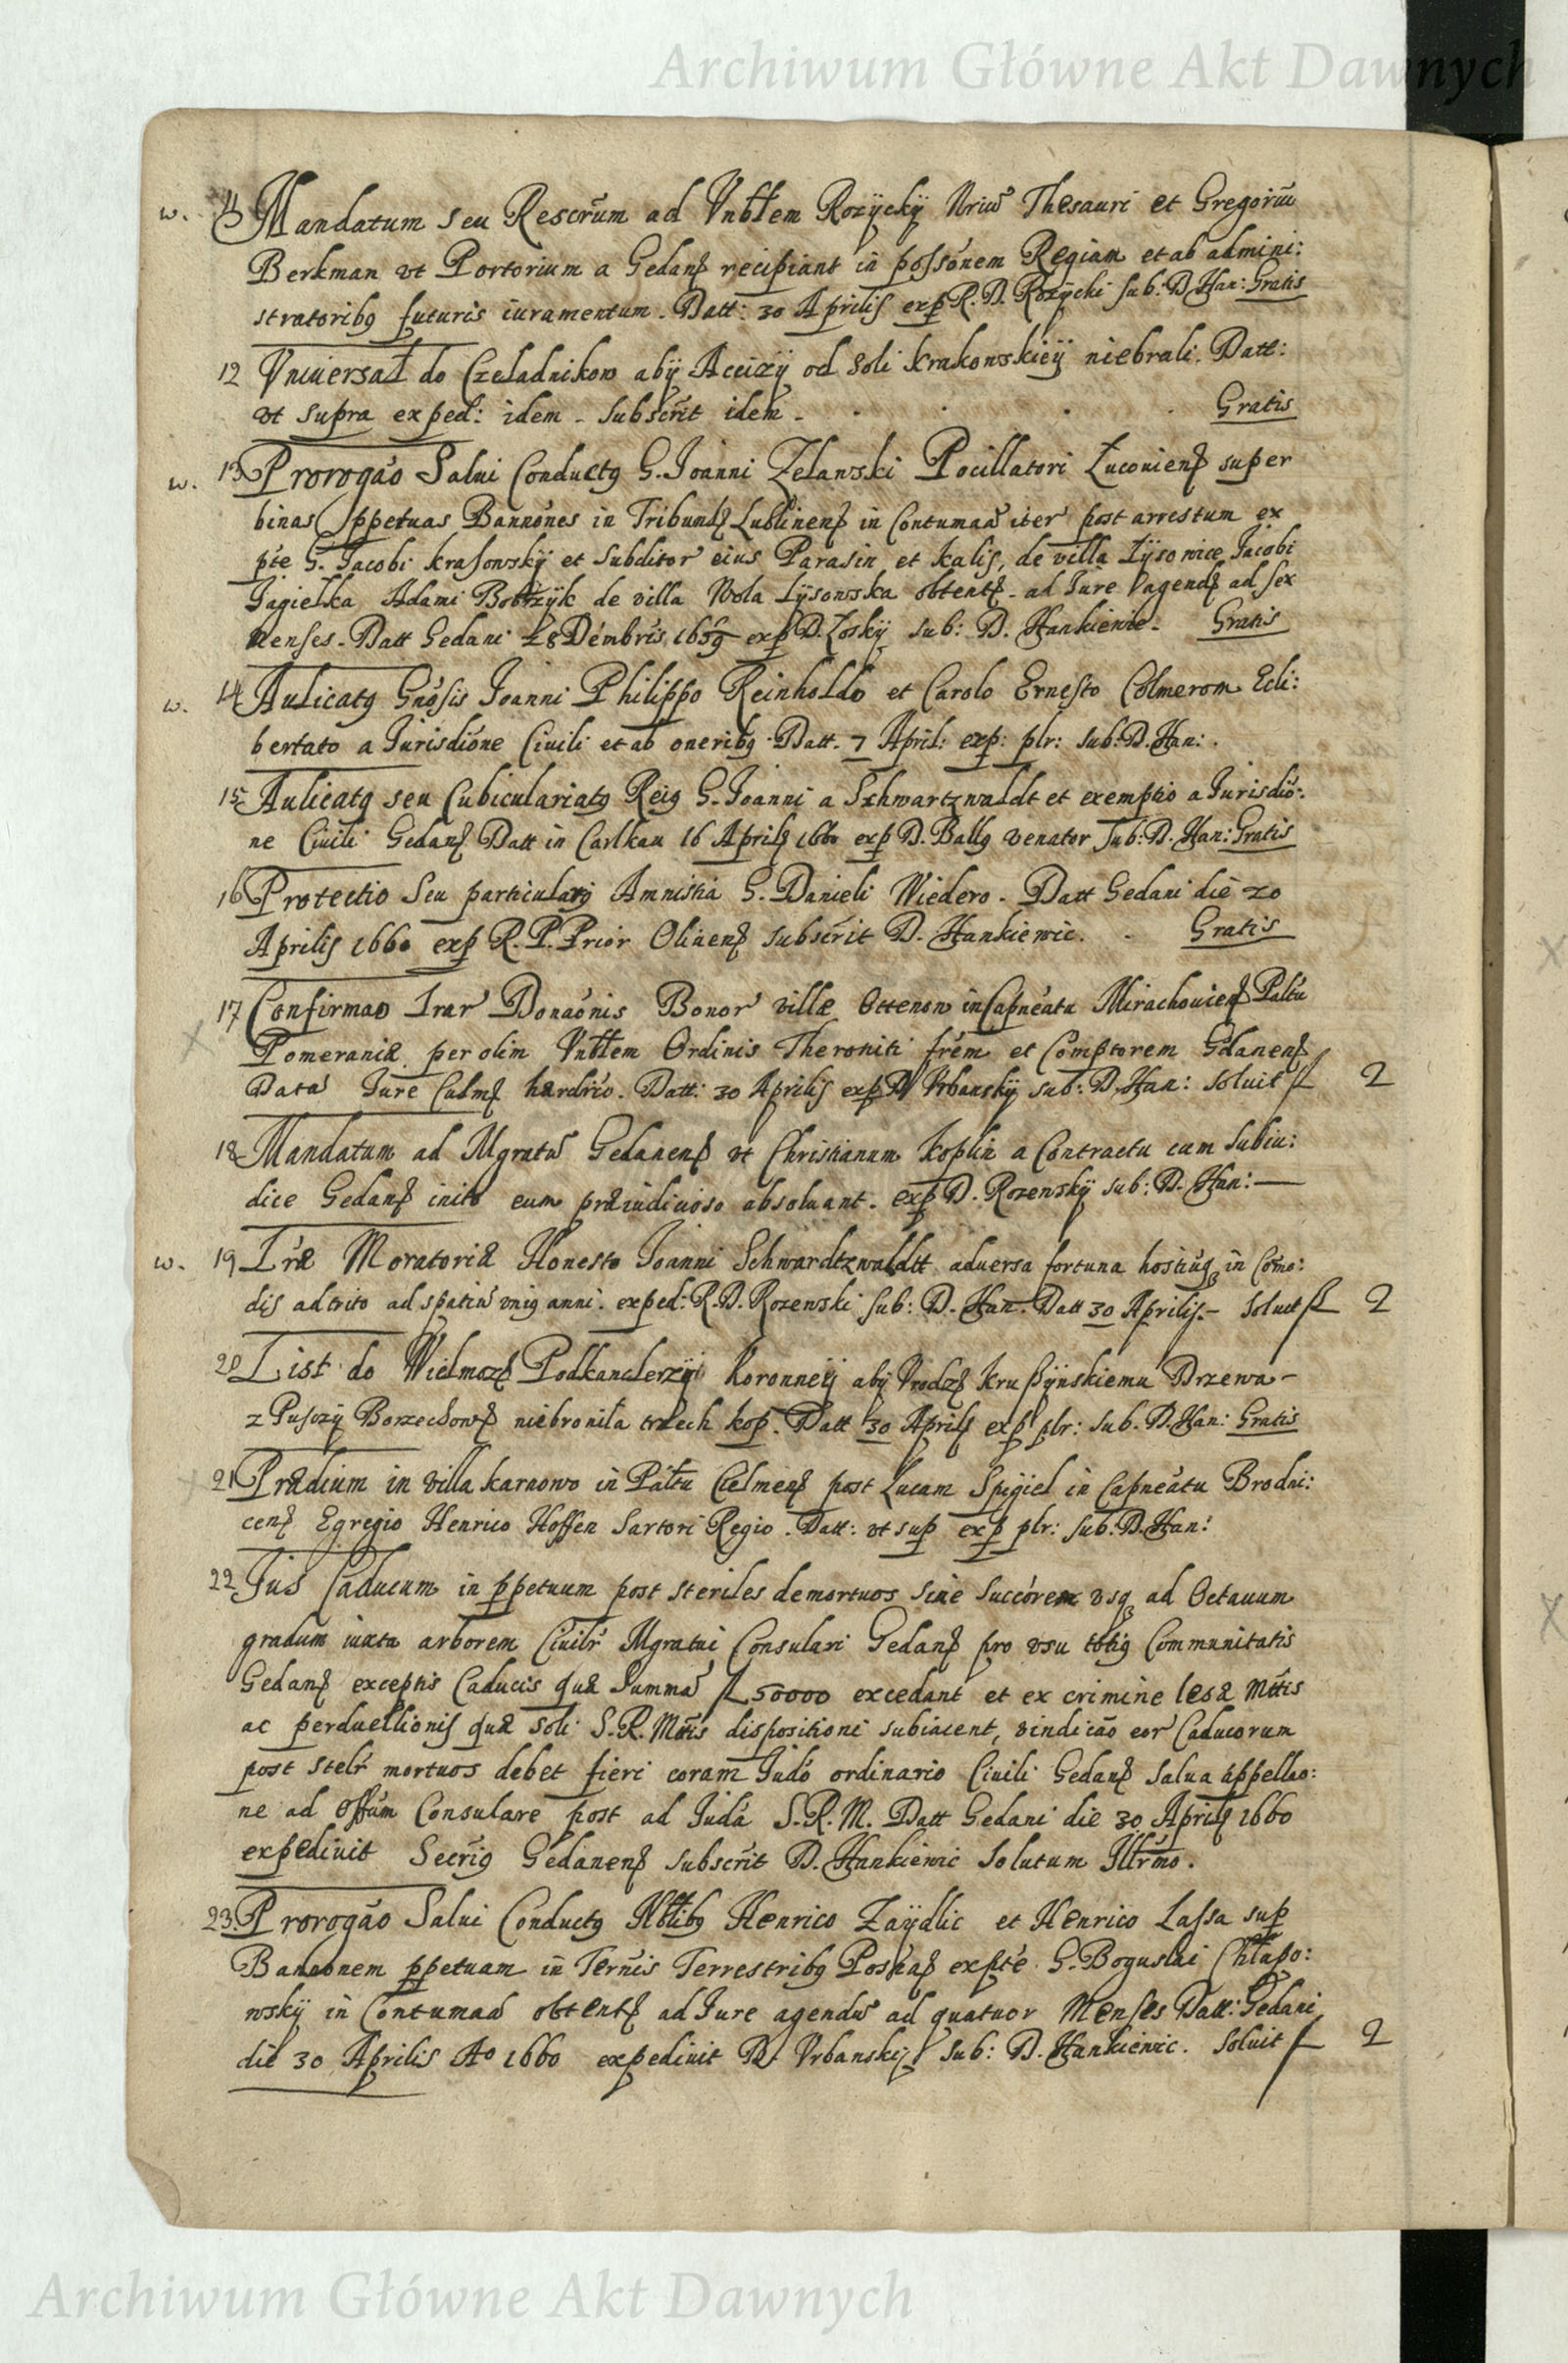 Archiwum Główne Akt Dawnych
w. 11 Mandatum seu Rescr̃um ad Vnbłem Rozÿckÿ Nriũ Thesauri et Gregoriũ
Berkman vt Portorium a Gedanȩ recipiant in possõnem Regiam et ab admini:
stratoribq futuris iuramentum. Datt: 30 Aprilis exp R. D. Rozÿcki sub: D. Han: Gratis
12 Vniuersał do Czeladnikow abÿ Accizÿ od soli krakowskieÿ niebrali. Datt:
vt supra exped: idem. Subscrit idem. Gratis
w. 13 Prorogão Salui Conductq G. Joanni Zelawski Pocillatori Łucouienȩ super
binas ppetuas Bannónes in Tribunalȩ Lublinenȩ in Contumaã iter post arrestum ex
pte G. Jacobi krasowskÿ et Subditor eius Parasin et kalis, de villa Łÿsowice Jacobi
Jagiełka Adami Bobrzÿk de villa Wola Łÿsowska obtentȩ. ad Jure agendȩ ad sex
menses. Datt Gedani 28 Dẽmbris 1659 exp D. Łoskÿ sub: D. Hankiewic. Gratis
w. 14 Aulicatq Gnósis Joanni Philippo Reinholdo et Carolo Ernesto Colmerom Eli:
bertato a Jurisdióne Ciuili et ab oneribq. Datt. 7 April: exp: plr: sub: D. Han:.
15 Aulicatq seu Cubiculariatq Reiq G. Joanni a Schwartzwaldt et exemptio a Jurisdió:
ne Ciuili Gedanȩ Datt in Carlkau 16 Aprilȩ 1660 exp D. Ballq venator Sub: D. Han: Gratis
16 Protectio Seu particularis Amnistia G. Danieli Wiedero. Datt Gedani die 20
Aprilis 1660 exp R. P. Prior Oliuenȩ subscrit D. Hankiewic. Gratis
17 Confirmaõ Irar Donaónis Bonor villæ Ottenow in Capneatu Mirachouienȩ Pałtu
Pomeraniæ per olim Vnbłem Ordinis Theroniti frém et Comptorem Gdanenȩ
Data Jure Culmȩ hærdrio. Datt: 30 Aprilis exp D Vrbanskÿ sub: D. Han: soluit fl 2
18 Mandatum ad Mgratũ Gedanenȩ vt Christianum koplin a Contractu cum Subiu:
dice Gedanȩ inito eum præiudicioso absoluant. exp D. Rozenskÿ sub: D. Han:
w. 19 Iræ Moratoriæ Honesto Joanni Schwardtzwaldtt aduersa fortuna hostiuq in Como:
dis adtrito ad spatiũ vniq anni. exped: R. D. Rozenski sub: D. Han. Datt 30 Aprilis. Soluit fl 2
20 List do Wielmożȩ Podkanclerzÿ koronneÿ abÿ Vrodzȩ kruszÿnskiemu Drzewa
z Puszczÿ Borzechowȩ niebroniła trzech kop. Datt 30 Aprilȩ exp plr: sub. D. Han: Gratis
21 Prædium in villa karnowo in Pałtu Chelmenȩ post Lucam Spigiel in Capneatu Brodni:
cenȩ Egregio Henrico Hoffen Sartori Regio. Datt: vt sup exp plr: sub: D. Han:
22 Jus Caducum in ppetuum post steriles demortuos sine Succórem vsq ad Octauum
gradum iuxta arborem Ciuilr Mgratui Consulari Gedanȩ pro vsu totiq Communitatis
Gedanȩ exceptis Caducis quæ Summã fl 50000 excedant et ex crimine lesæ Mttis
ac perduellionis quæ soli S. R. Mttis dispositioni subiacent, vindicão eor Caducorum
post stelr mortuos debet fieri coram Judó ordinario Ciuili Gedanȩ salua áppellao:
ne ad Offũm Consulare post ad Judá S. R. M. Datt Gedani die 30 Aprilȩ 1660
expediuit Secriq Gedanenȩ subscrit D. Hankiewic Solutum Illr̃mo.
23 Prorogáo Salui Conductq Nbłibq Henrico Zaÿdlic et Henrico Lassa sup
Bannonem ppetuam in Terñis Terrestribq Posnaȩ expte G. Boguslai Chłapo:
wskÿ in Contumaã obtentȩ ad Jure agendũ ad quatuor Menses Datt: Gedani
die 30 Aprilis Aº 1660 expediuit D. Vrbanskÿ sub: D. Hankiewic. Soluit fl 2
Archiwum Główne Akt Dawnych